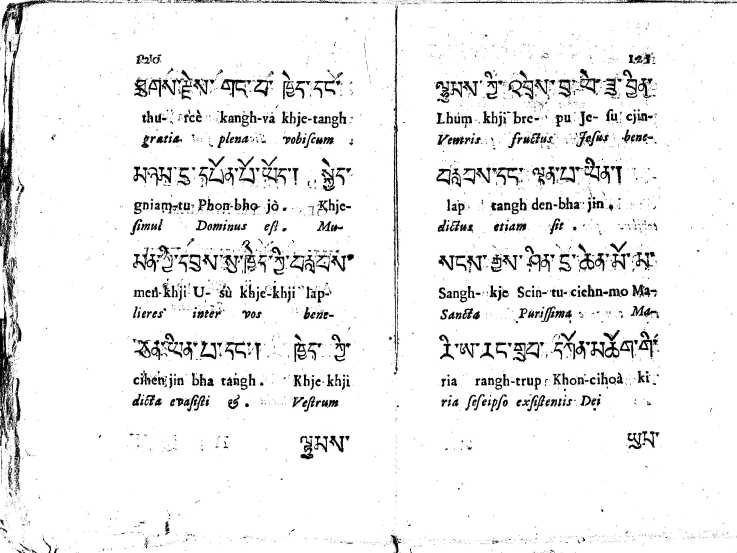 120
ཐུགས་རྗེས་ གང་ བ་ ཁྱེད་དང་
thu- rcè kangh-và khje-tangh
gratia plena vobiscum
མཉམ་དུ་དཔོན་པོ་ཡོད། སྐྱེད་
gniam-tu Phon-bho jò. Khje-
simul Dominus est. Mu-
མེན་ཀྱི་དབུས་སུ་ཁྱེད་ཀྱི་བརླབས་
men-khji U- sù khje-khji lap-
lieres inter vos bene-
ཅན་ཡིན་པ་དང་། ཁྱེད་ ཀྱི་
cihen jin bha tangh. Khje khji
dicta evasisti &. Vestrum
ལྷུམས་
121
ལྷུམས་ཀྱི་འབྲེས་བུ་ ཡེ་ ཟུ་ བྱིན་
Lhum khji bre- pu Je- su cjin-
Ventris fructus Jesus bene-
བརླབས་དང་ ལྡན་པ་ཡིན།
lap tangh den-bha jin.
dictus etiam sit.
སངས་རྒྱས་ཤིན་ཏུ་ཆེན་མོ་མ་
Sangh-kje Scin-tu-ciehn-mo Ma-
Sancta Purissima Ma-
རི་ཨ་རང་གྲུབ་ དཀོན་མཆོག་གི་
ria rangh-trup Khon-cihoà ki
ria seseipso existentis Dei
ཡུམ་